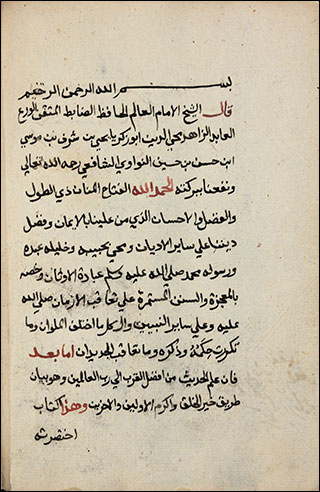 بسم الله الرحمن الرحيم
قال الشيخ الامام العالم الحافظ الضابط المتقن الورع
العابد الزاهد محيي الدين ابو زكريا يحيى بن شرف بن موسي
ابن حسن بن حسين النواوي الشافعي رحمه الله تعالي
ونفعنا ببركته الحمد لله الفتاح المنان ذي الطول
والفضل والاحسان الذي من علينا بالايمان وفضل
ديننا علي ساير الاديان ومحي بحبيبه وخليله عبده
ورسوله محمد صلي الله عليه وسلم عبادة الاوثان وخصه
بالمعجزة والسنن المستمرة علي تعاقب الازمان صلي الله
عليه وعلي ساير النبيين وال كل ما اختلف الملوان وما
تكررت حكمه وذكره وما تعاقب الجديدان اما بعد
فان علم الحديث من افضل القرب الي رب العالمين وهو بيان
طريق خير الخلق واكرم الاولين والاخرين وهذا كتاب
اختصرته